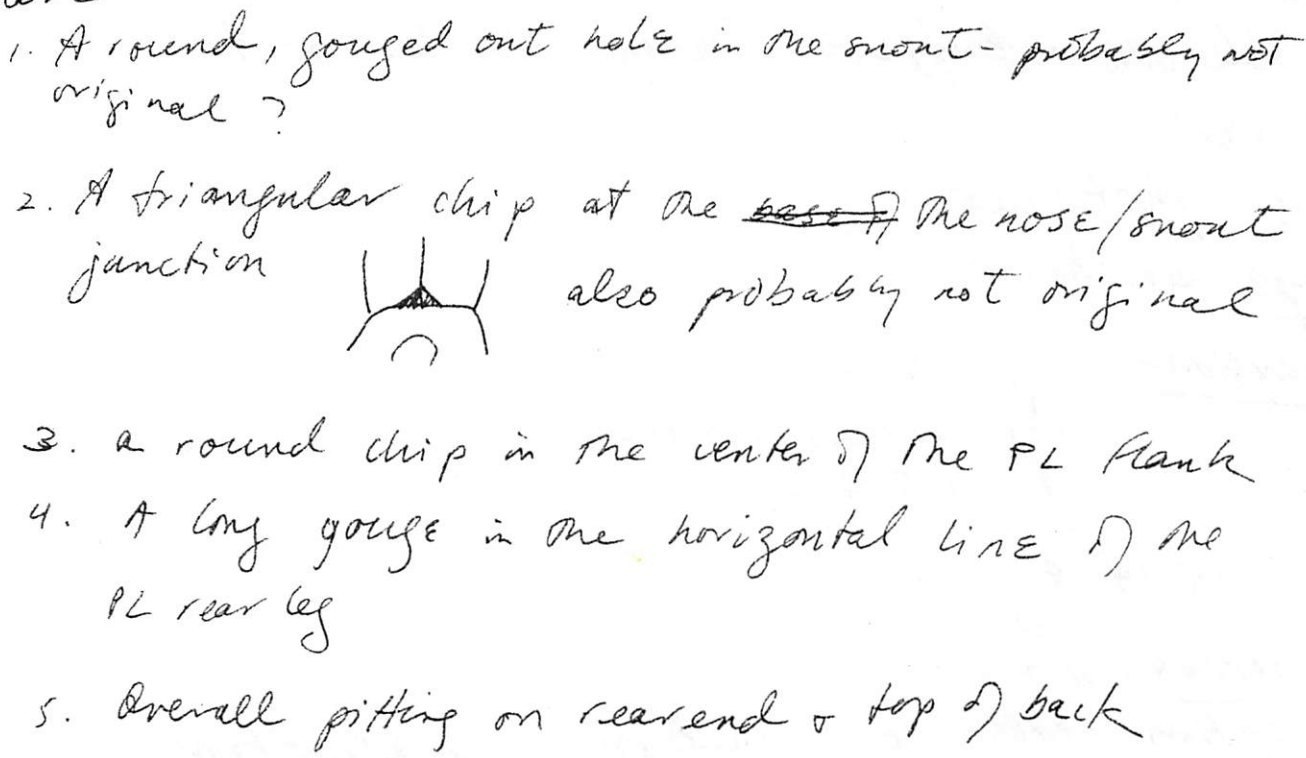 1. A round, gouged out hole in the snout - probably not
original ?
2. A triangular chip at the base of the nose/snout
junction also probably not original
3. a round chip in the center of the PL flank
4. A long gouge in the horizontal line of the
PL rear leg
5. Overall pitting on rear end & top of back